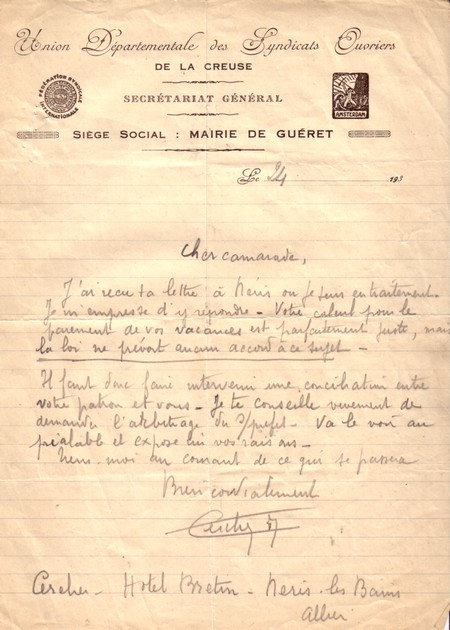 Union Départementale des Syndicats Ouvriers
DE LA CREUSE
SECRÉTARIAT GÉNÉRAL
FÉDÉRATION SYNDICALE INTERNATIONALE
AMSTERDAM
SIÈGE SOCIAL : MAIRIE DE GUÉRET
Le 24 193
Cher camarade,
J'ai reçu ta lettre à Néris où je suis en traitement.
Je m'empresse d'y répondre - Votre calcul pour le
paiement de vos vacances est parfaitement juste, mais
la loi ne prévoit aucun accord à ce sujet -
Il faut donc faire intervenir une conciliation entre
votre patron et vous - Je te conseille vivement de
demander l'arbitrage du S/préfet - Va le voir au
préalable et expose lui vos raisons -
Tiens-moi au courant de ce qui se passera
Bien cordialement
Cercher - Hotel Bretin - Neris-les Bains
Allier